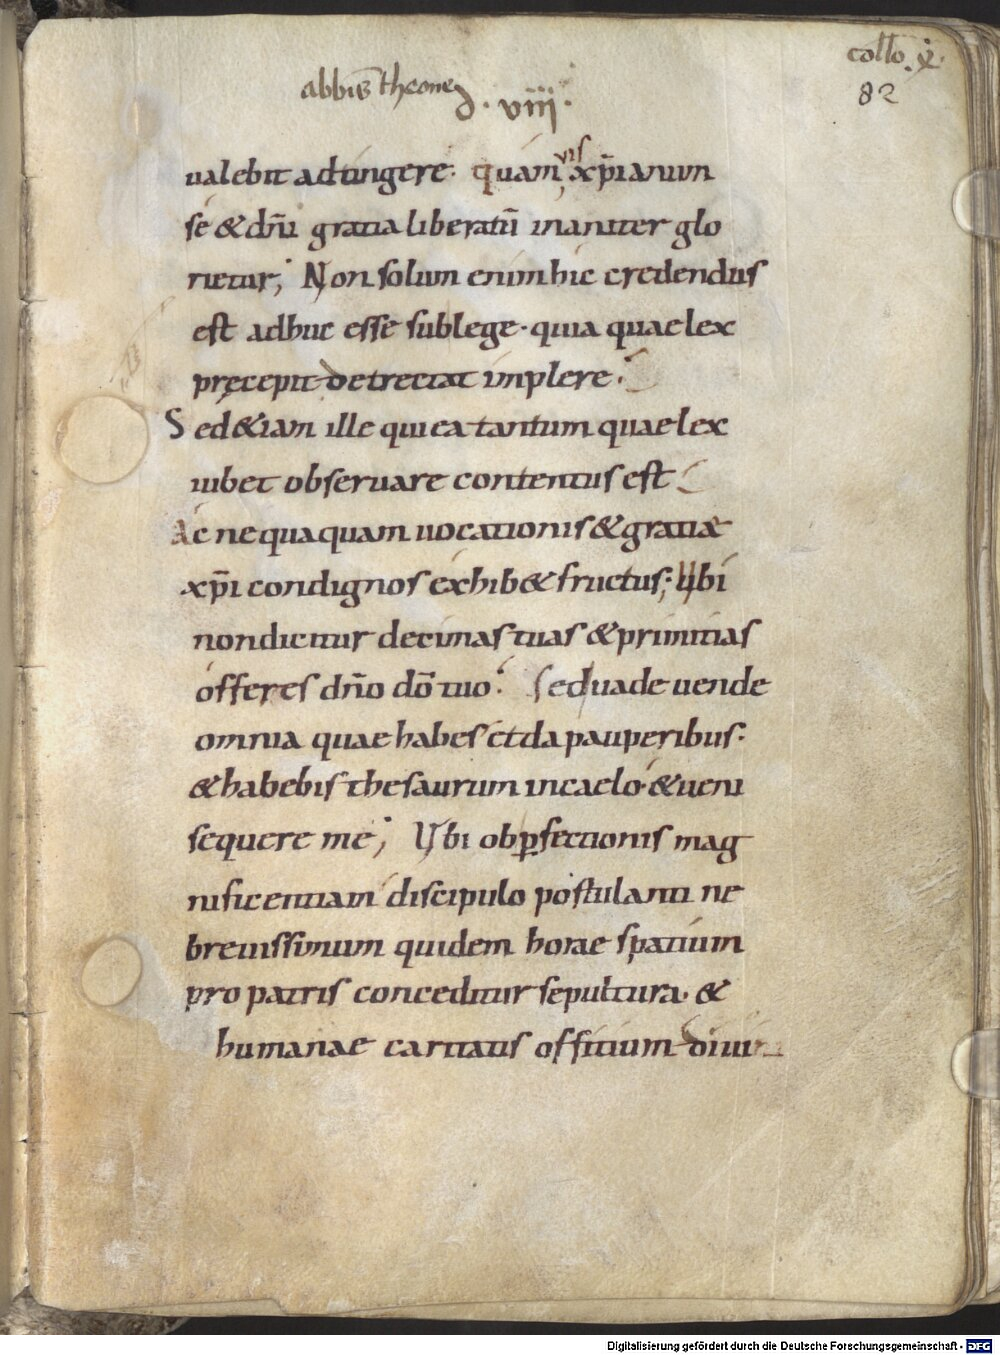 collo .x.
82
abbis theone . viii .
ualebit adtingere. quamvis xp̄ianum
sé & dn̄i gratia liberatū inaniter glo
rietur; Non solum enim hic credendus
est adhuc esse sublege. quia quae lex
pręcepit detrectat implere.
Sed &iam ille qui ea tantum quae lex
iubet obseruare contentus est
Ac nequaquam uocationis & gratiae
xp̄i condignos exhib& fructus; Ubi
non dicitur decimas tuas & primitias
offeres dn̄o dō tuo. sed uade uende
omnia quae habes et da pauperibus.
& habebis thesaurum in caelo & ueni
sequere me; Ubi ob ꝑfectionis mag
nificentiam discipulo postulanti ne
breuissimum quidem horae spatium
pro patris conceditur sepultura. &
humanae caritatis officium diui
Digitalisierung gefördert durch die Deutsche Forschungsgemeinschaft - DFG